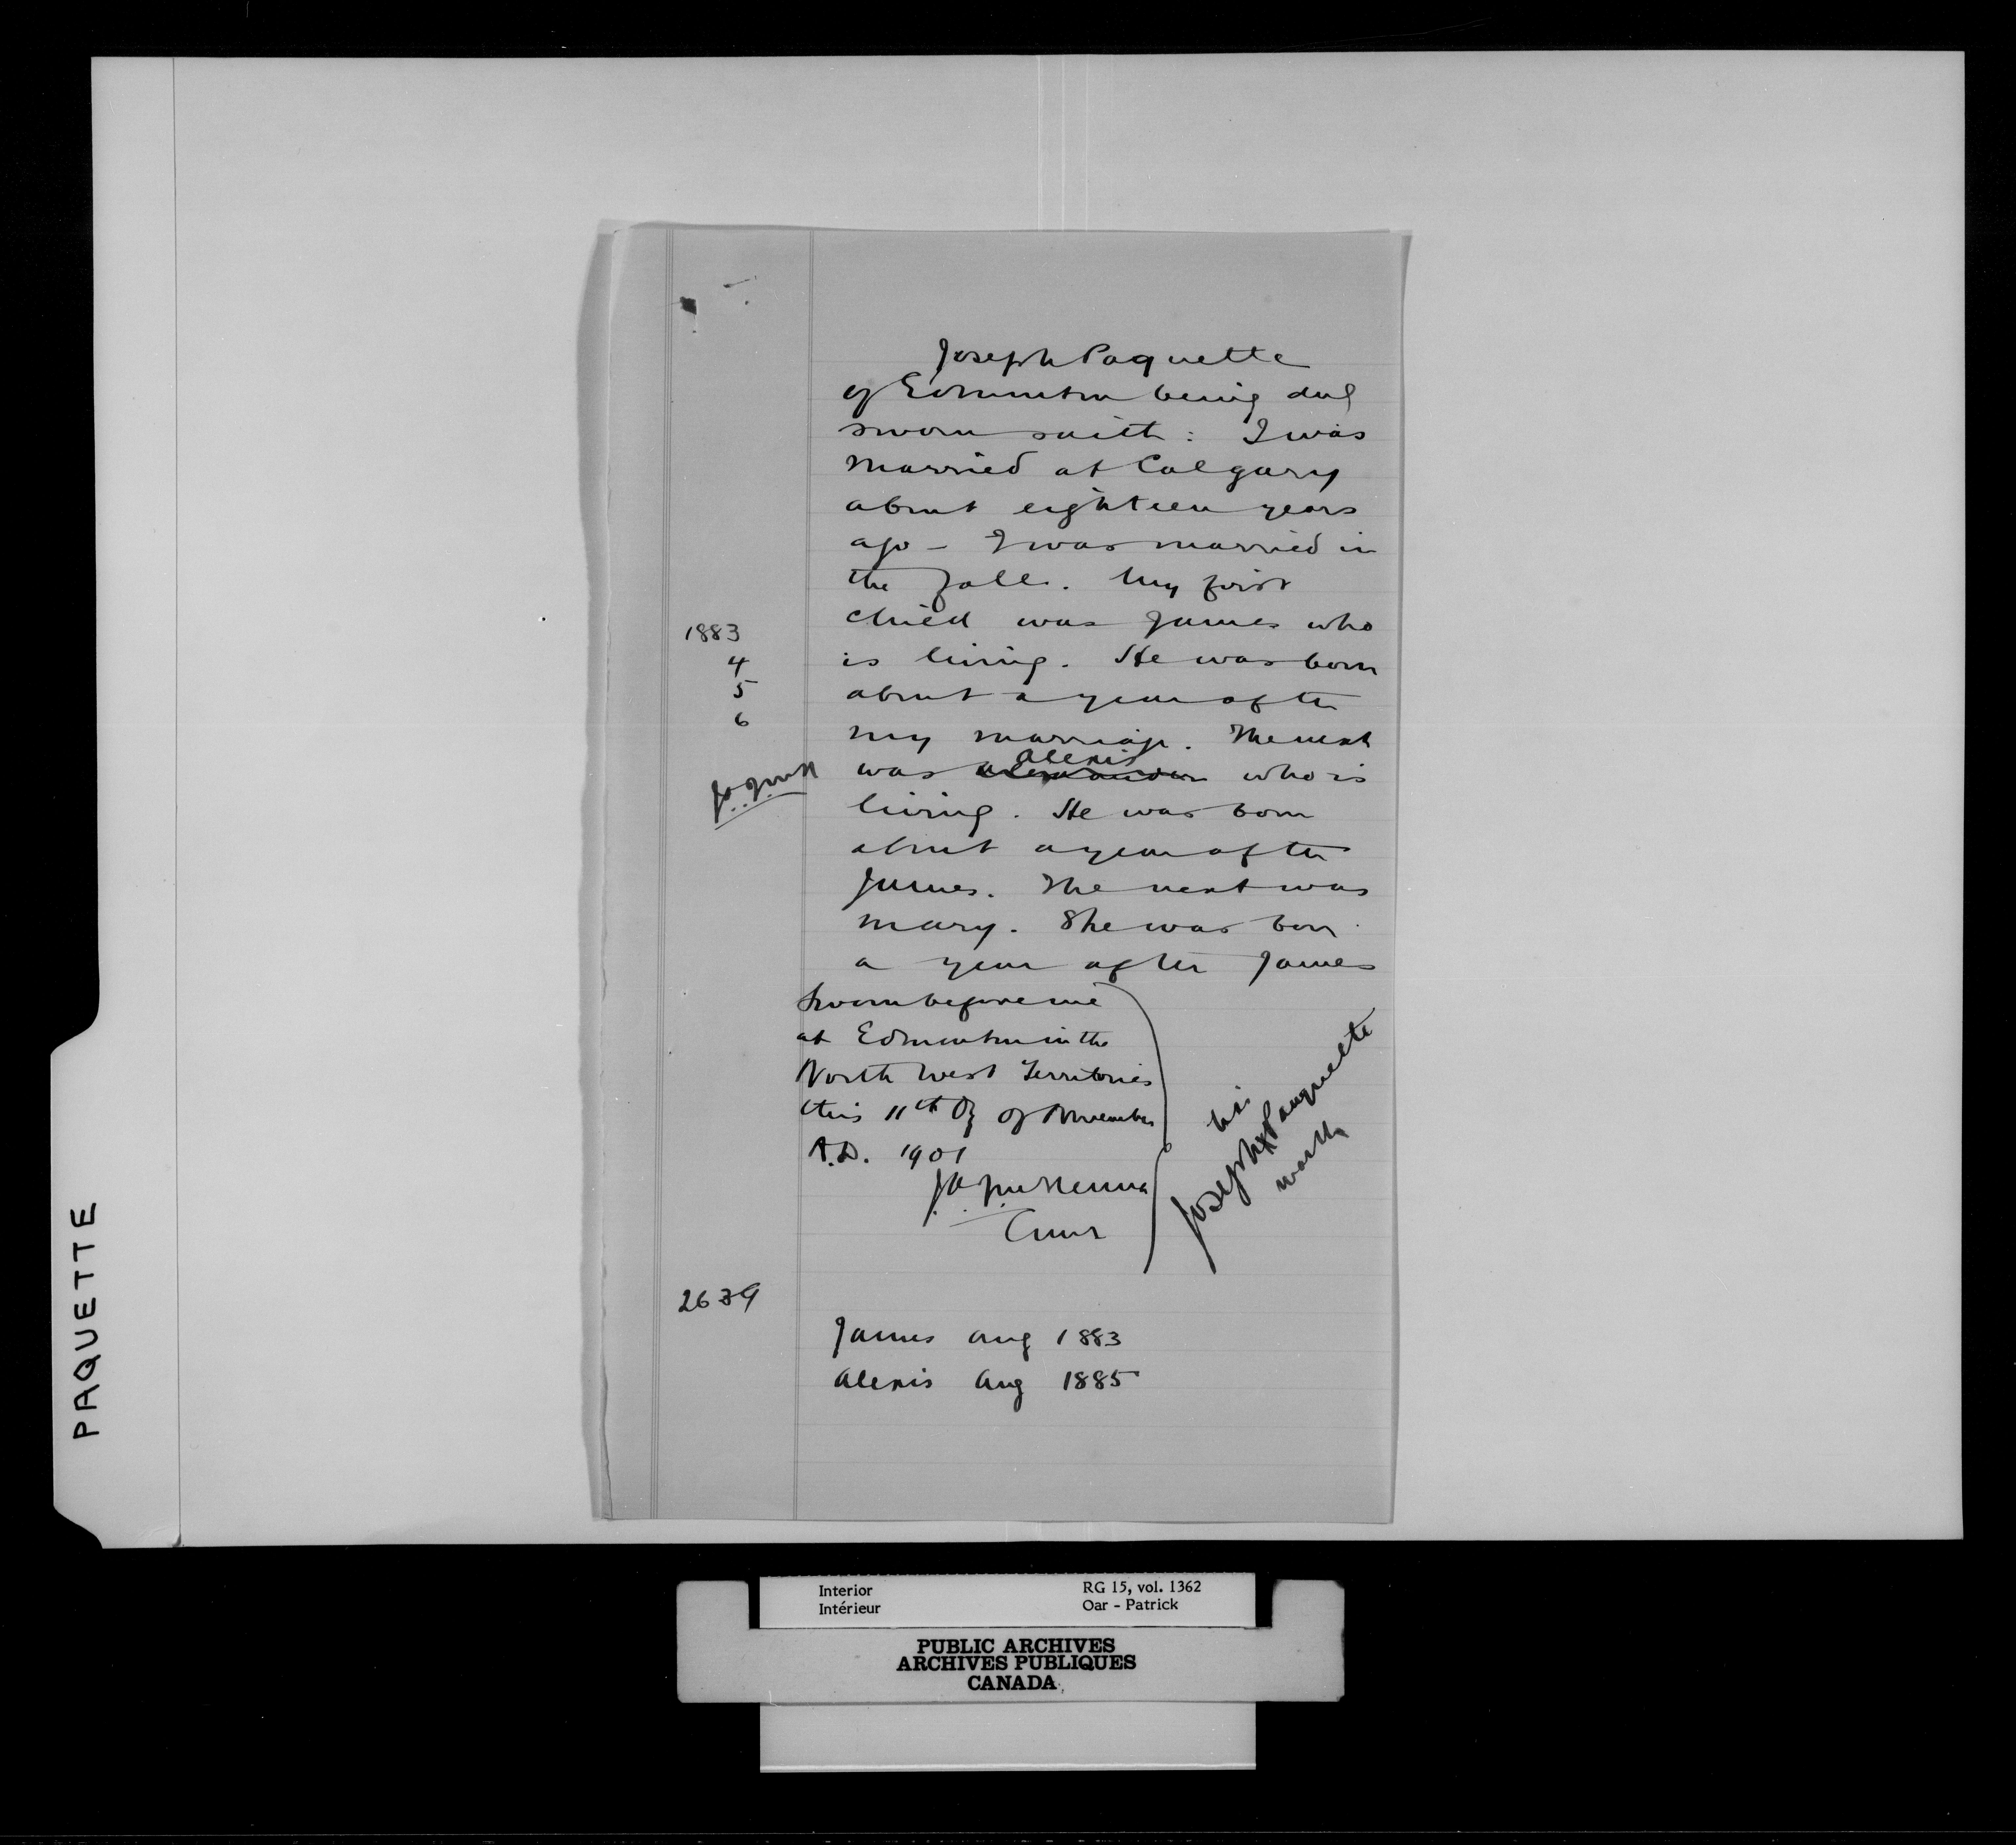 Joseph Paquette
of Edmonton being duly
sworn saith: I was
married at Calgary
about eighteen years
ago - I was married in
the fall. My first
child was James who
is living. He was born
about a year after
my marriage. The next
was Alexander Alexis who is
living. He was born
about a year after
James. The next was
Mary. She was born
a year after James
1883
4
5
6
J.A.J.McK
Sworn before me
at Edmonton in the
North West Territories
this 11th Dy of November
A.D. 1901
J.A.J. McKenna
Comr
his
Joseph X Pauquette
mark
2639
James Aug 1883
Alexis Aug 1885
PAQUETTE
Interior
Intérieur
RG 15, vol. 1362
Oar - Patrick
PUBLIC ARCHIVES
ARCHIVES PUBLIQUES
CANADA